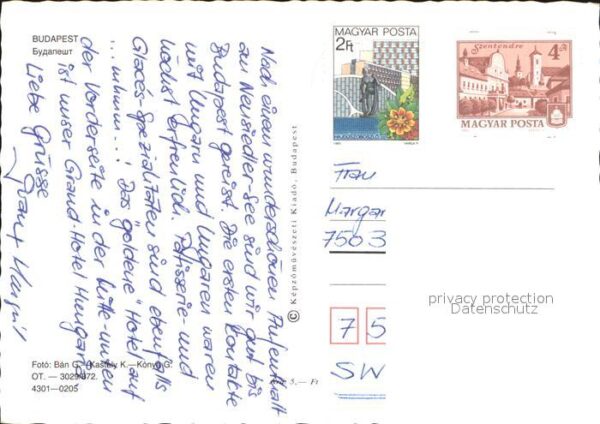 BUDAPEST
Будапешт
Nach einem wunderschönen Aufenthalt
am Neusiedler-See sind wir gut bis
Budapest gereist. Die ersten Kontakte
mit Ungarn und Ungaren waren
höchst erfreulich. Patisserie- und
Glacés-Spezialitäten sind ebenfalls
... mhmm...! Das "goldene" Hotel auf
der Vorderseite in der Mitte-unten
ist unser Grand-Hotel Hungaria
Liebe Grüsse
Foto: Bán G.–Kastély K.–Kónya G.
OT. — 3029/872.
4301—0205
5,— Ft
© Képzőművészeti Kiadó, Budapest
MAGYAR POSTA
2Ft
Szentendre
4Ft
MAGYAR POSTA
Frau
Margar
7503
75
SW
privacy protection
Datenschutz